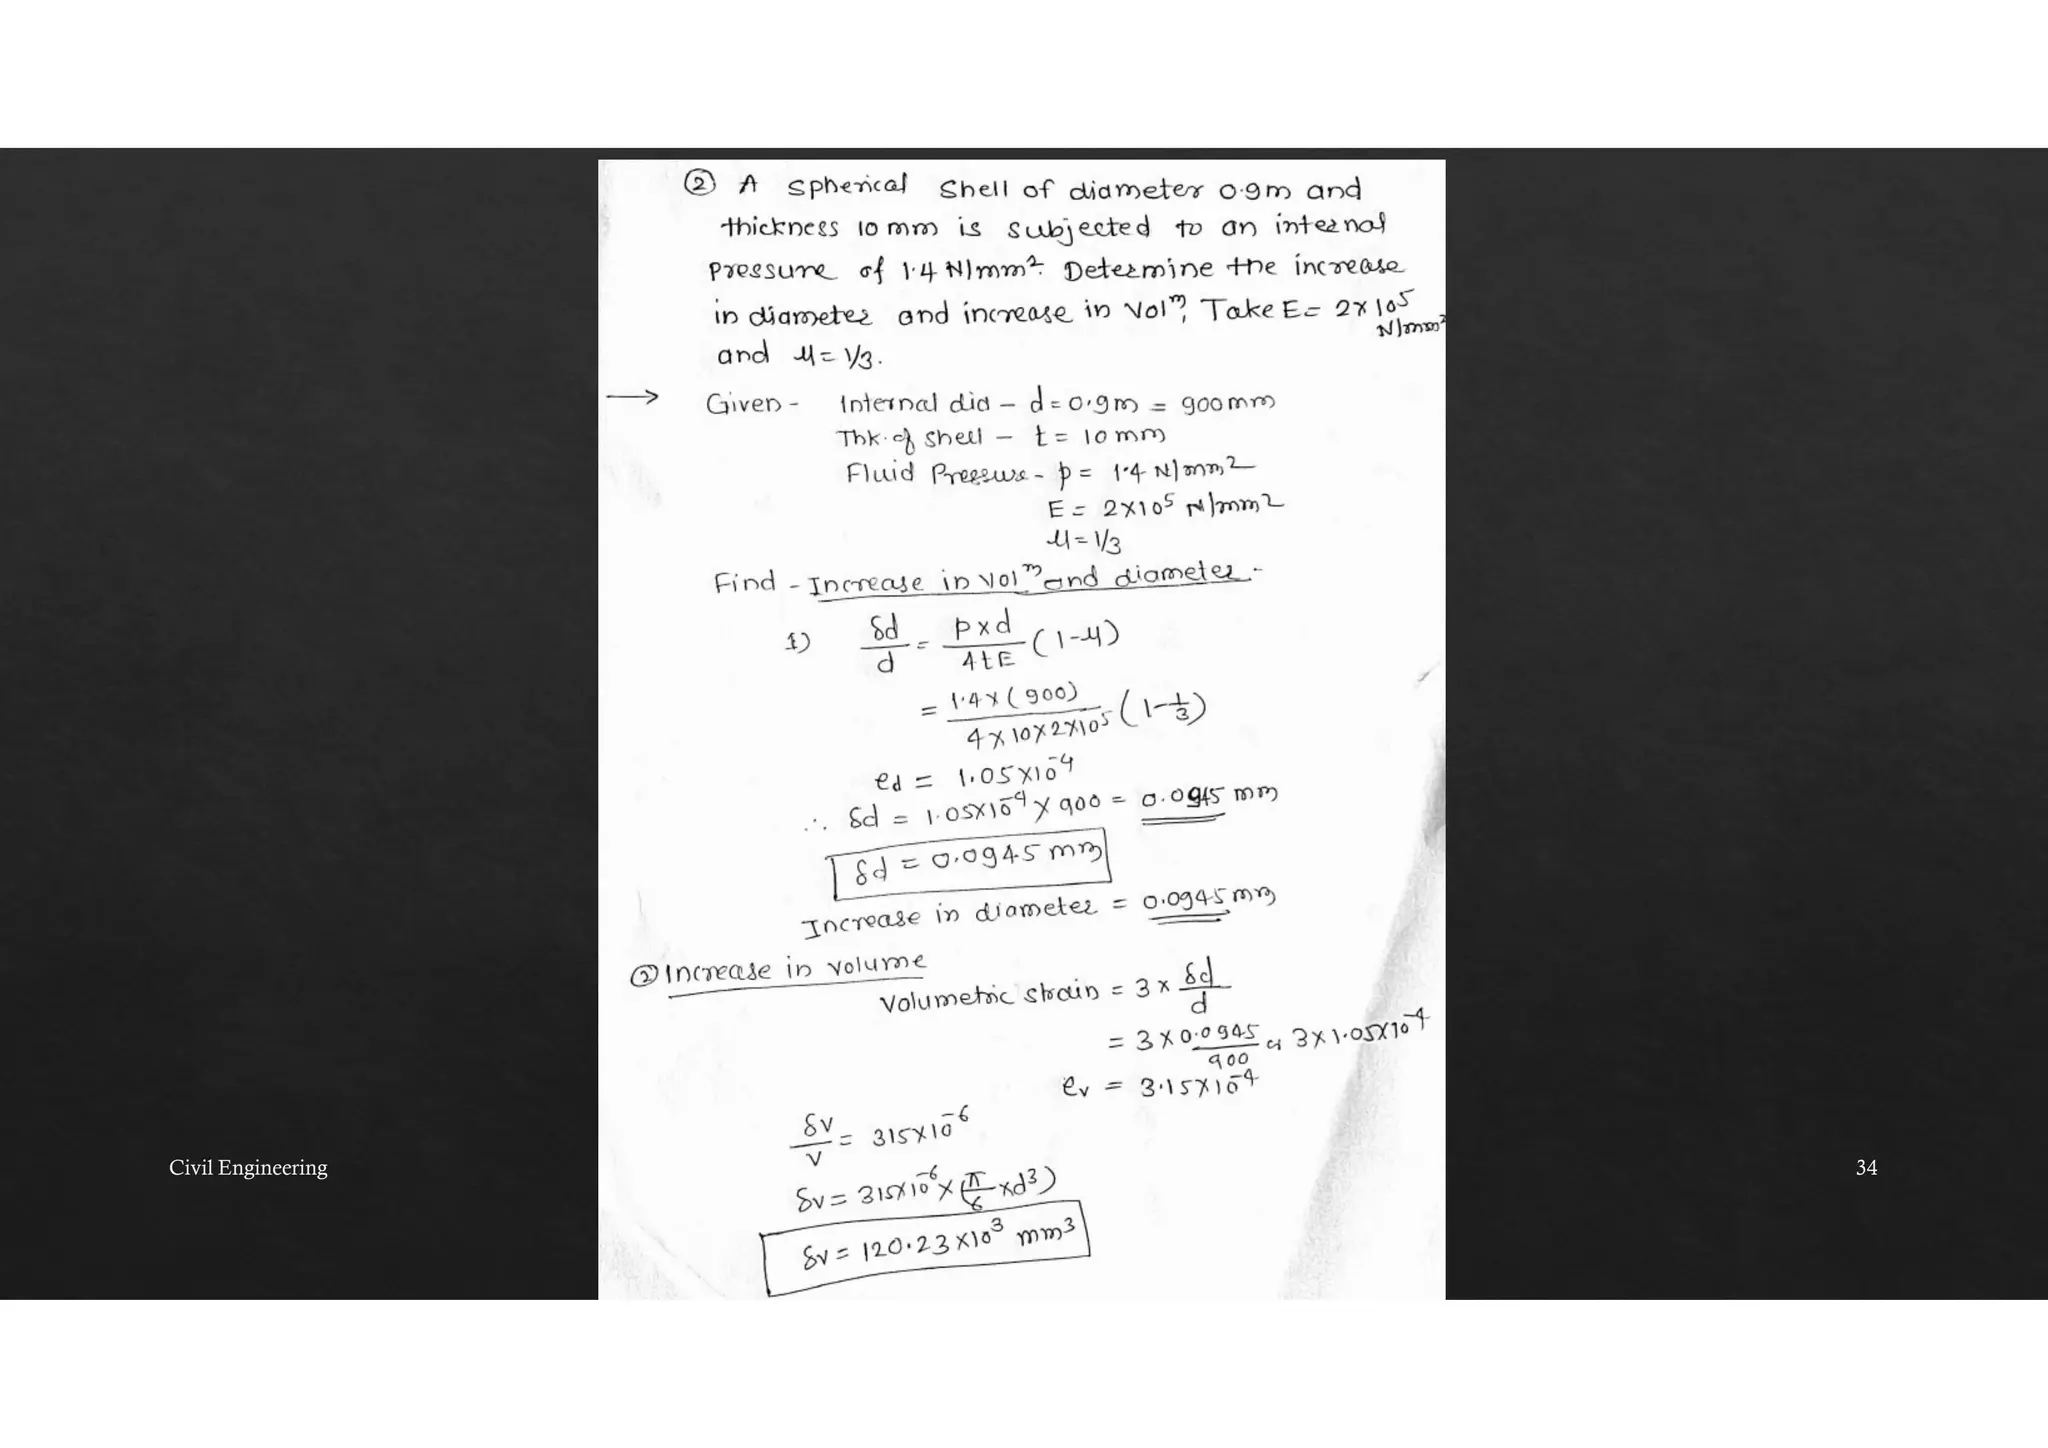 ② A spherical shell of diameter 0.9m and
thickness 10 mm is subjected to an internal
pressure of 1.4 N/mm². Determine the increase
in diameter and increase in Volᵐ, Take E = 2×10⁵
N/mm²
and μ = 1/3.
→ Given - Internal dia – d = 0.9m = 900mm
Thk. of shell – t = 10 mm
Fluid Pressure - p = 1.4 N/mm²
E = 2×10⁵ N/mm²
μ = 1/3
Find - Increase in volᵐ and diameter -
1) δd/d = p×d/4tE (1-μ)
= 1.4×(900)/4×10×2×10⁵ (1-1/3)
ed = 1.05×10⁻⁴
∴ δd = 1.05×10⁻⁴ × 900 = 0.0945 mm
δd = 0.0945 mm
Increase in diameter = 0.0945 mm
② Increase in volume
Volumetric strain = 3 × δd/d
= 3 × 0.0945/900 or 3×1.05×10⁻⁴
ev = 3.15×10⁻⁴
δv/v = 315×10⁻⁶
δv = 315×10⁻⁶ × (π/6 × d³)
δv = 120.23 ×10³ mm³
Civil Engineering
34